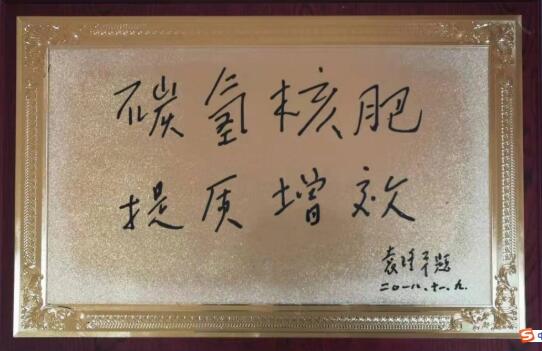 碳氢核肥
提质增效
袁隆平题
二〇一八.十一.九.